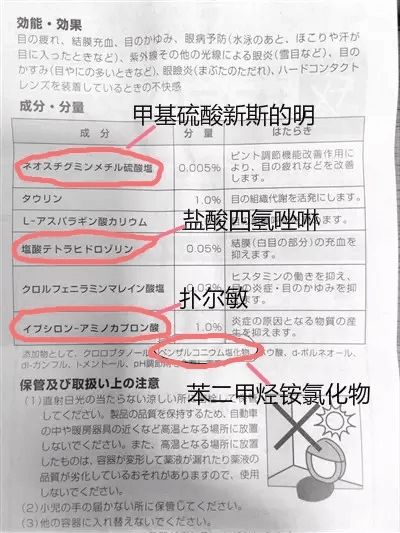 効能・効果
目の疲れ、結膜充血、目のかゆみ、眼病予防(水泳のあと、ほこりや汗が
目に入ったときなど)、紫外線その他の光線による眼炎(雪目など)、目の
かすみ(目やにの多いときなど)、眼瞼炎(まぶたのただれ)、ハードコンタクト
レンズを装着しているときの不快感
成分・分量
甲基硫酸新斯的明
成 分 分 量 はたらき
ネオスチグミンメチル硫酸塩 0.005% ピント調節機能改善作用に
より、目の疲れなどを改善
します。
タウリン 1.0% 目の組織代謝を活発にします。
L-アスパラギン酸カリウム
盐酸四氢唑啉
塩酸テトラヒドロゾリン 0.05% 結膜(白目の部分)の充血を
抑えます。
クロルフェニラミンマレイン酸塩 ヒスタミンの働きを抑え、
目の炎症・目のかゆみを抑
扑尔敏
イプシロン-アミノカプロン酸 1.0% 炎症の原因となる物質の産
生を抑えます。
添加物として、クロロブタノール、ベンザルコニウム塩化物、ホウ酸、d-ボルネオール、
dl-カンフル、l-メントール、pH調節剤
苯二甲烃铵氯化物
保管及び取扱い上の注意
(1)直射日光の当たらない涼しい所
してください。製品の品質を保持するため、自動車
の中や暖房器具の近くなど高温となる場所に放置
しないでください。また、高温となる場所に放置
したものは、容器が変形して薬液が漏れたり薬液の
品質が劣化しているおそれがありますので、使用
しないでください。
(2)小児の手の届かない所に保管してください。
(3)他の容器に入れ替えないでください。